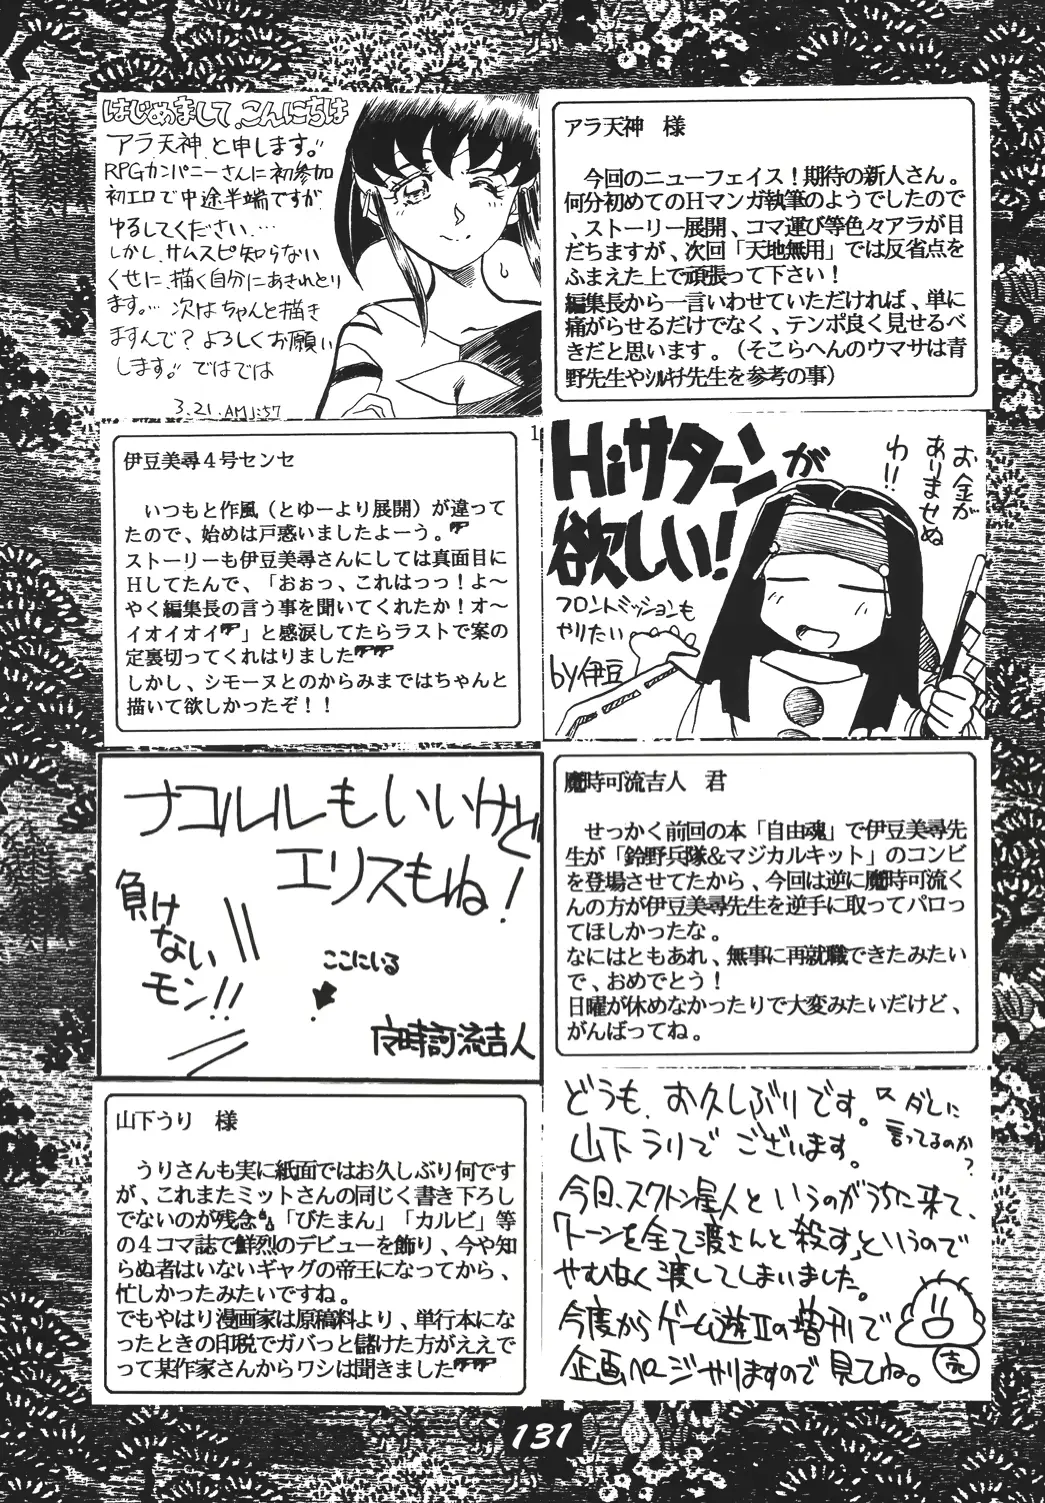 はじめまして、こんにちは
アラ天神と申します。
RPGカンパニーさんに初参加
初エロで中途半端ですが
ゆるしてください…
しかし、サムスピ知らない
くせに、描く自分にあきれとり
ます…次はちゃんと描き
ますんで?よろしくお願い
します。ではでは
3.21.AM1:57
アラ天神 様
今回のニューフェイス!期待の新人さん。
何分初めてのHマンガ執筆のようでしたので
、ストーリー展開、コマ運び等色々アラが目
だちますが、次回「天地無用」では反省点を
ふまえた上で頑張って下さい!
編集長から一言いわせていただければ、単に
痛がらせるだけでなく、テンポ良く見せるべ
きだと思います。(そこらへんのウマサは青
野先生やシルキチ先生を参考の事)
伊豆美尋4号センセ
いつもと作風(とゆーより展開)が違って
たので、始めは戸惑いましたよーう。
ストーリーも伊豆美尋さんにしては真面目に
Hしてたんで、「おぉっ、これはっっ!よ~
やく編集長の言う事を聞いてくれたか!オ~
イオイオイ」と感涙してたらラストで案の
定裏切ってくれはりました
しかし、シモーヌとのからみまではちゃんと
描いて欲しかったぞ!!
1
Hiサターンが
欲しい!
お金が
ありませぬ
わ!!
フロントミッションも
やりたい
by伊豆
ナコルルもいいけど
エリスもね!
負け
ない
モン!!
ここにいる
魔時可流吉人 君
せっかく前回の本「自由魂」で伊豆美尋先
生が「鈴野兵隊&マジカルキット」のコンビ
を登場させてたから、今回は逆に魔時可流く
んの方が伊豆美尋先生を逆手に取ってパロっ
てほしかったな。
なにはともあれ、無事に再就職できたみたい
で、おめでとう!
日曜が休めなかったりで大変みたいだけど、
がんばってね。
山下うり 様
うりさんも実に紙面ではお久しぶり何です
が、これまたミットさんの同じく書き下ろし
でないのが残念。「びたまん」「カルビ」等
の4コマ誌で鮮烈のデビューを飾り、今や知
らぬ者はいないギャグの帝王になってから、
忙しかったみたいですね。
でもやはり漫画家は原稿料より、単行本にな
ったときの印税でガバっと儲けた方がええで
って某作家さんからワシは聞きました
どうも、お久しぶりです。
ダレに
言ってるのか?
山下うりでございます。
今回、スクトン星人というのがうちに来て、
「トーンを全て渡さんと殺す」というので
やむなく渡してしまいました。
今度からゲーム遊IIの増刊で
企画ページやりますので見てね。
売
131